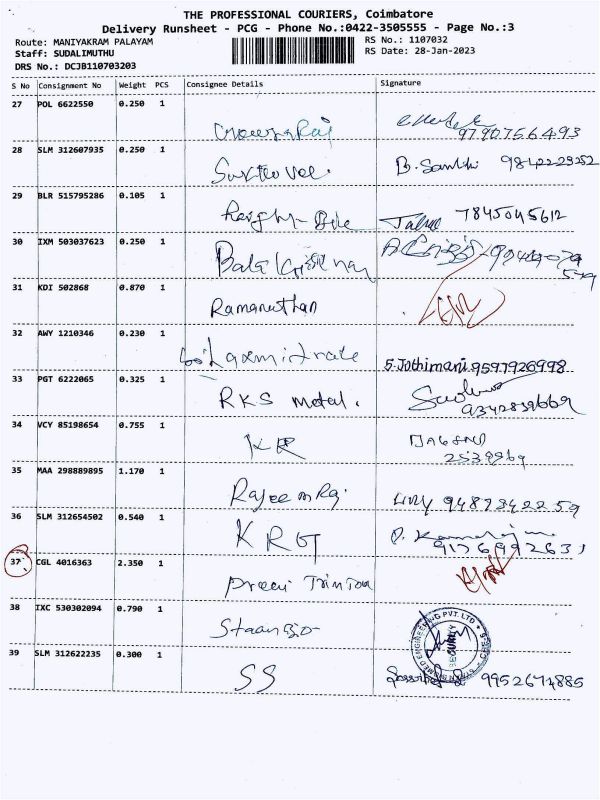 THE PROFESSIONAL COURIERS, Coimbatore
Delivery Runsheet - PCG - Phone No.:0422-3505555 - Page No.:3
Route: MANIYAKRAM PALAYAM
RS No.: 1107032
Staff: SUDALIMUTHU
RS Date: 28-Jan-2023
DRS No.: DCJB110703203
S No Consignment No Weight PCS Consignee Details Signature
27 POL 6622550 0.250 1
9790756493
28 SLM 312607935 0.250 1
B. Santhi 9842229252
29 BLR 515795286 0.105 1
7845045612
30 IXM 503037623 0.250 1
Bala Krishnan
31 KDI 502868 0.870 1
Ramanathan
32 AWY 1210346 0.230 1
S. Jothimani 9597926998
33 PGT 6222065 0.325 1
RKS metal. 9342839669
34 VCY 85198654 0.755 1
KR
2539969
35 MAA 298889895 1.170 1
9489342259
36 SLM 312654502 0.540 1
KRG
9176992631
37 CGL 4016363 2.350 1
38 IXC 530302094 0.790 1
39 SLM 312622235 0.300 1
SS 9952674885